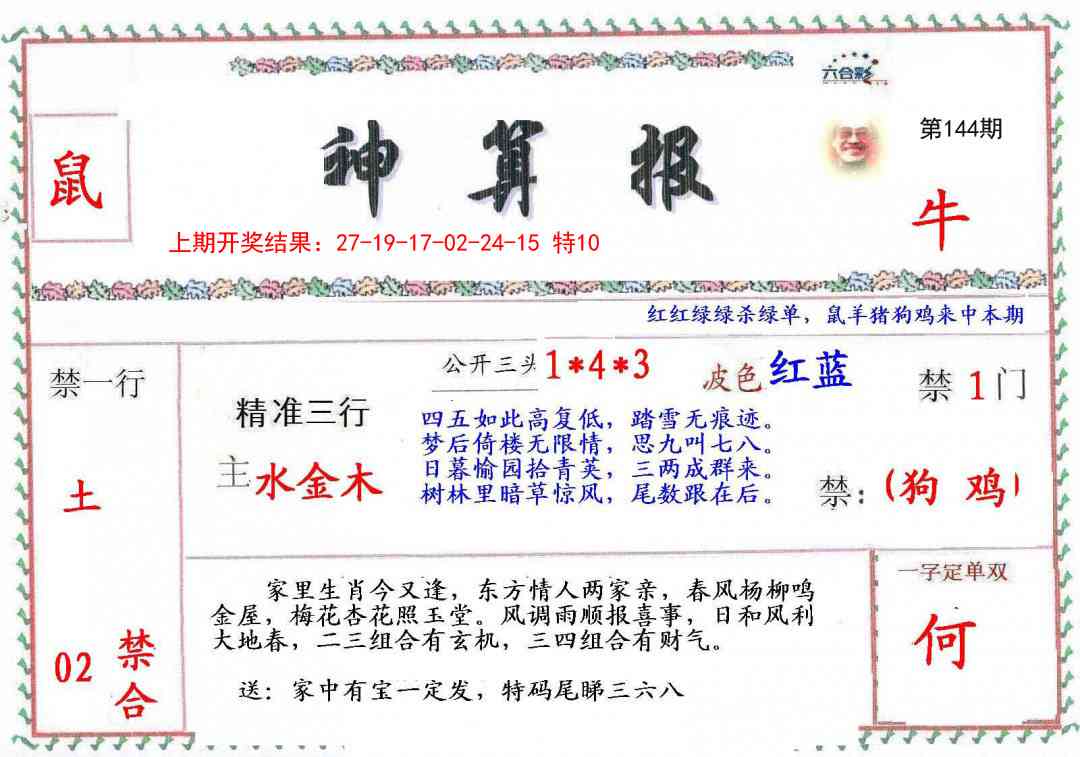 六合彩
第144期
鼠
神算报
牛
上期开奖结果：27-19-17-02-24-15 特10
红红绿绿杀绿单，鼠羊猪狗鸡来中本期
禁一行
公开三头1*4*3
波色红蓝
禁1门
精准三行
四五如此高复低，踏雪无痕迹。
梦后倚楼无限情，思九叫七八。
日暮愉园拾青英，三两成群来。
树林里暗草惊风，尾数跟在后。
土
主水金木
禁：(狗 鸡)
家里生肖今又逢，东方情人两家亲，春风杨柳鸣
金屋，梅花杏花照玉堂。风调雨顺报喜事，日和风利
大地春，二三组合有玄机，三四组合有财气。
送：家中有宝一定发，特码尾睇三六八
一字定单双
何
02
禁合